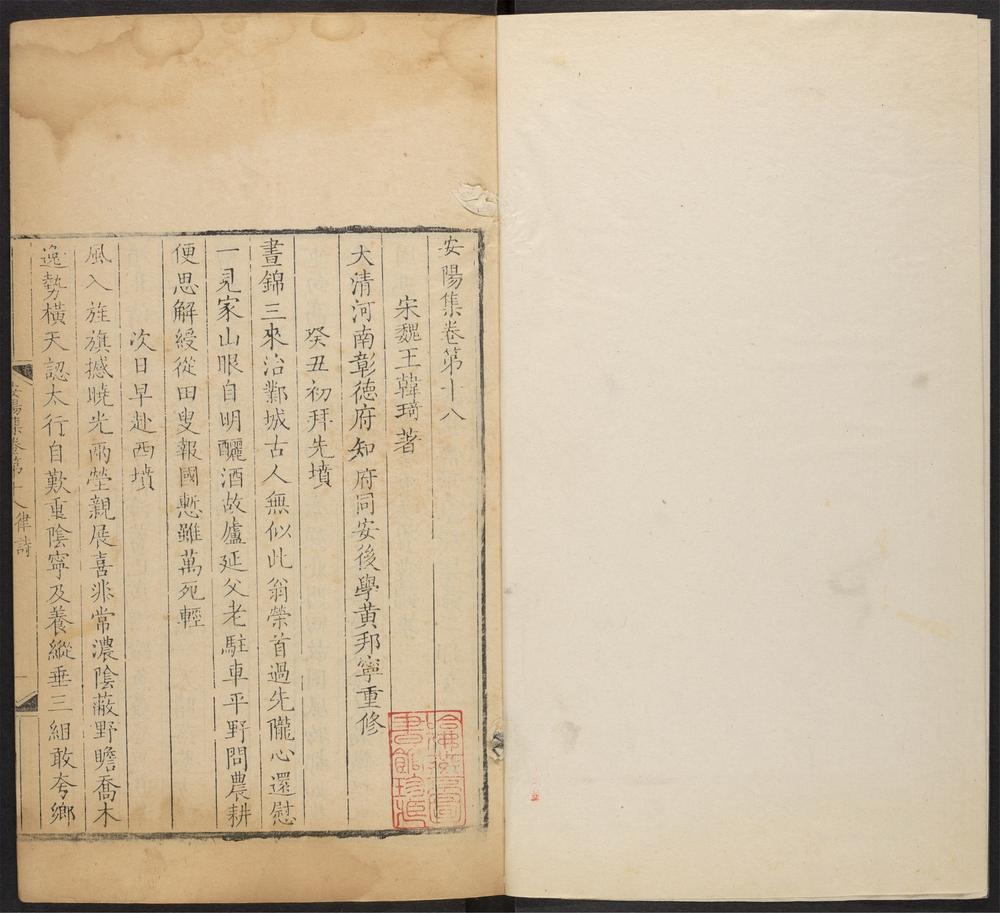 安陽集卷第十八
宋魏王韓琦著
大清河南彰德府知府同安後學黃邦寧重修
癸丑初拜先墳
晝錦三來治鄴城古人無似此翁榮首過先隴心還慰
一見家山眼自明釃酒故廬延父老駐車平野問農耕
便思解綬從田叟報國慙雖萬死輕
次日早赴西墳
風入旌旗撼曉光兩塋親展喜非常濃陰蔽野瞻喬木
逸勢橫天認太行自歎重陰寧及養縱垂三組敢夸鄉
安陽集卷第十八律詩
哈佛燕京圖書館珍藏